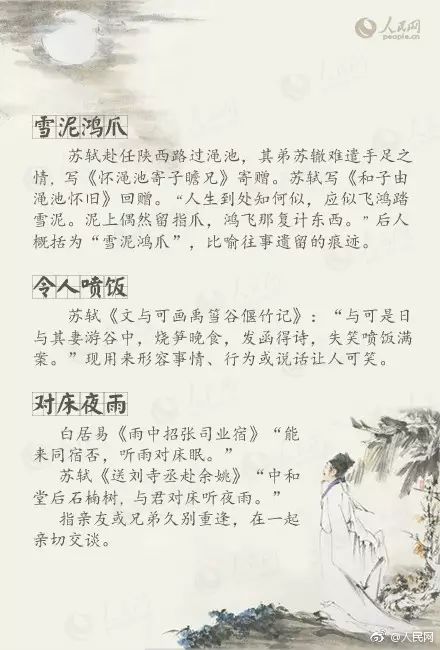 人民网
people.cn
雪泥鸿爪
苏轼赴任陕西路过渑池，其弟苏辙难遣手足之
情，写《怀渑池寄子瞻兄》寄赠。苏轼写《和子由
渑池怀旧》回赠。“人生到处知何似，应似飞鸿踏
雪泥。泥上偶然留指爪，鸿飞那复计东西。”后人
概括为“雪泥鸿爪”，比喻往事遗留的痕迹。
令人喷饭
苏轼《文与可画禹筜谷偃竹记》：“与可是日
与其妻游谷中，烧笋晚食，发函得诗，失笑喷饭满
案。”现用来形容事情、行为或说话让人可笑。
对床夜雨
白居易《雨中招张司业宿》“能
来同宿否，听雨对床眠。”
苏轼《送刘寺丞赴余姚》“中和
堂后石楠树，与君对床听夜雨。”
指亲友或兄弟久别重逢，在一起
亲切交谈。
@人民网